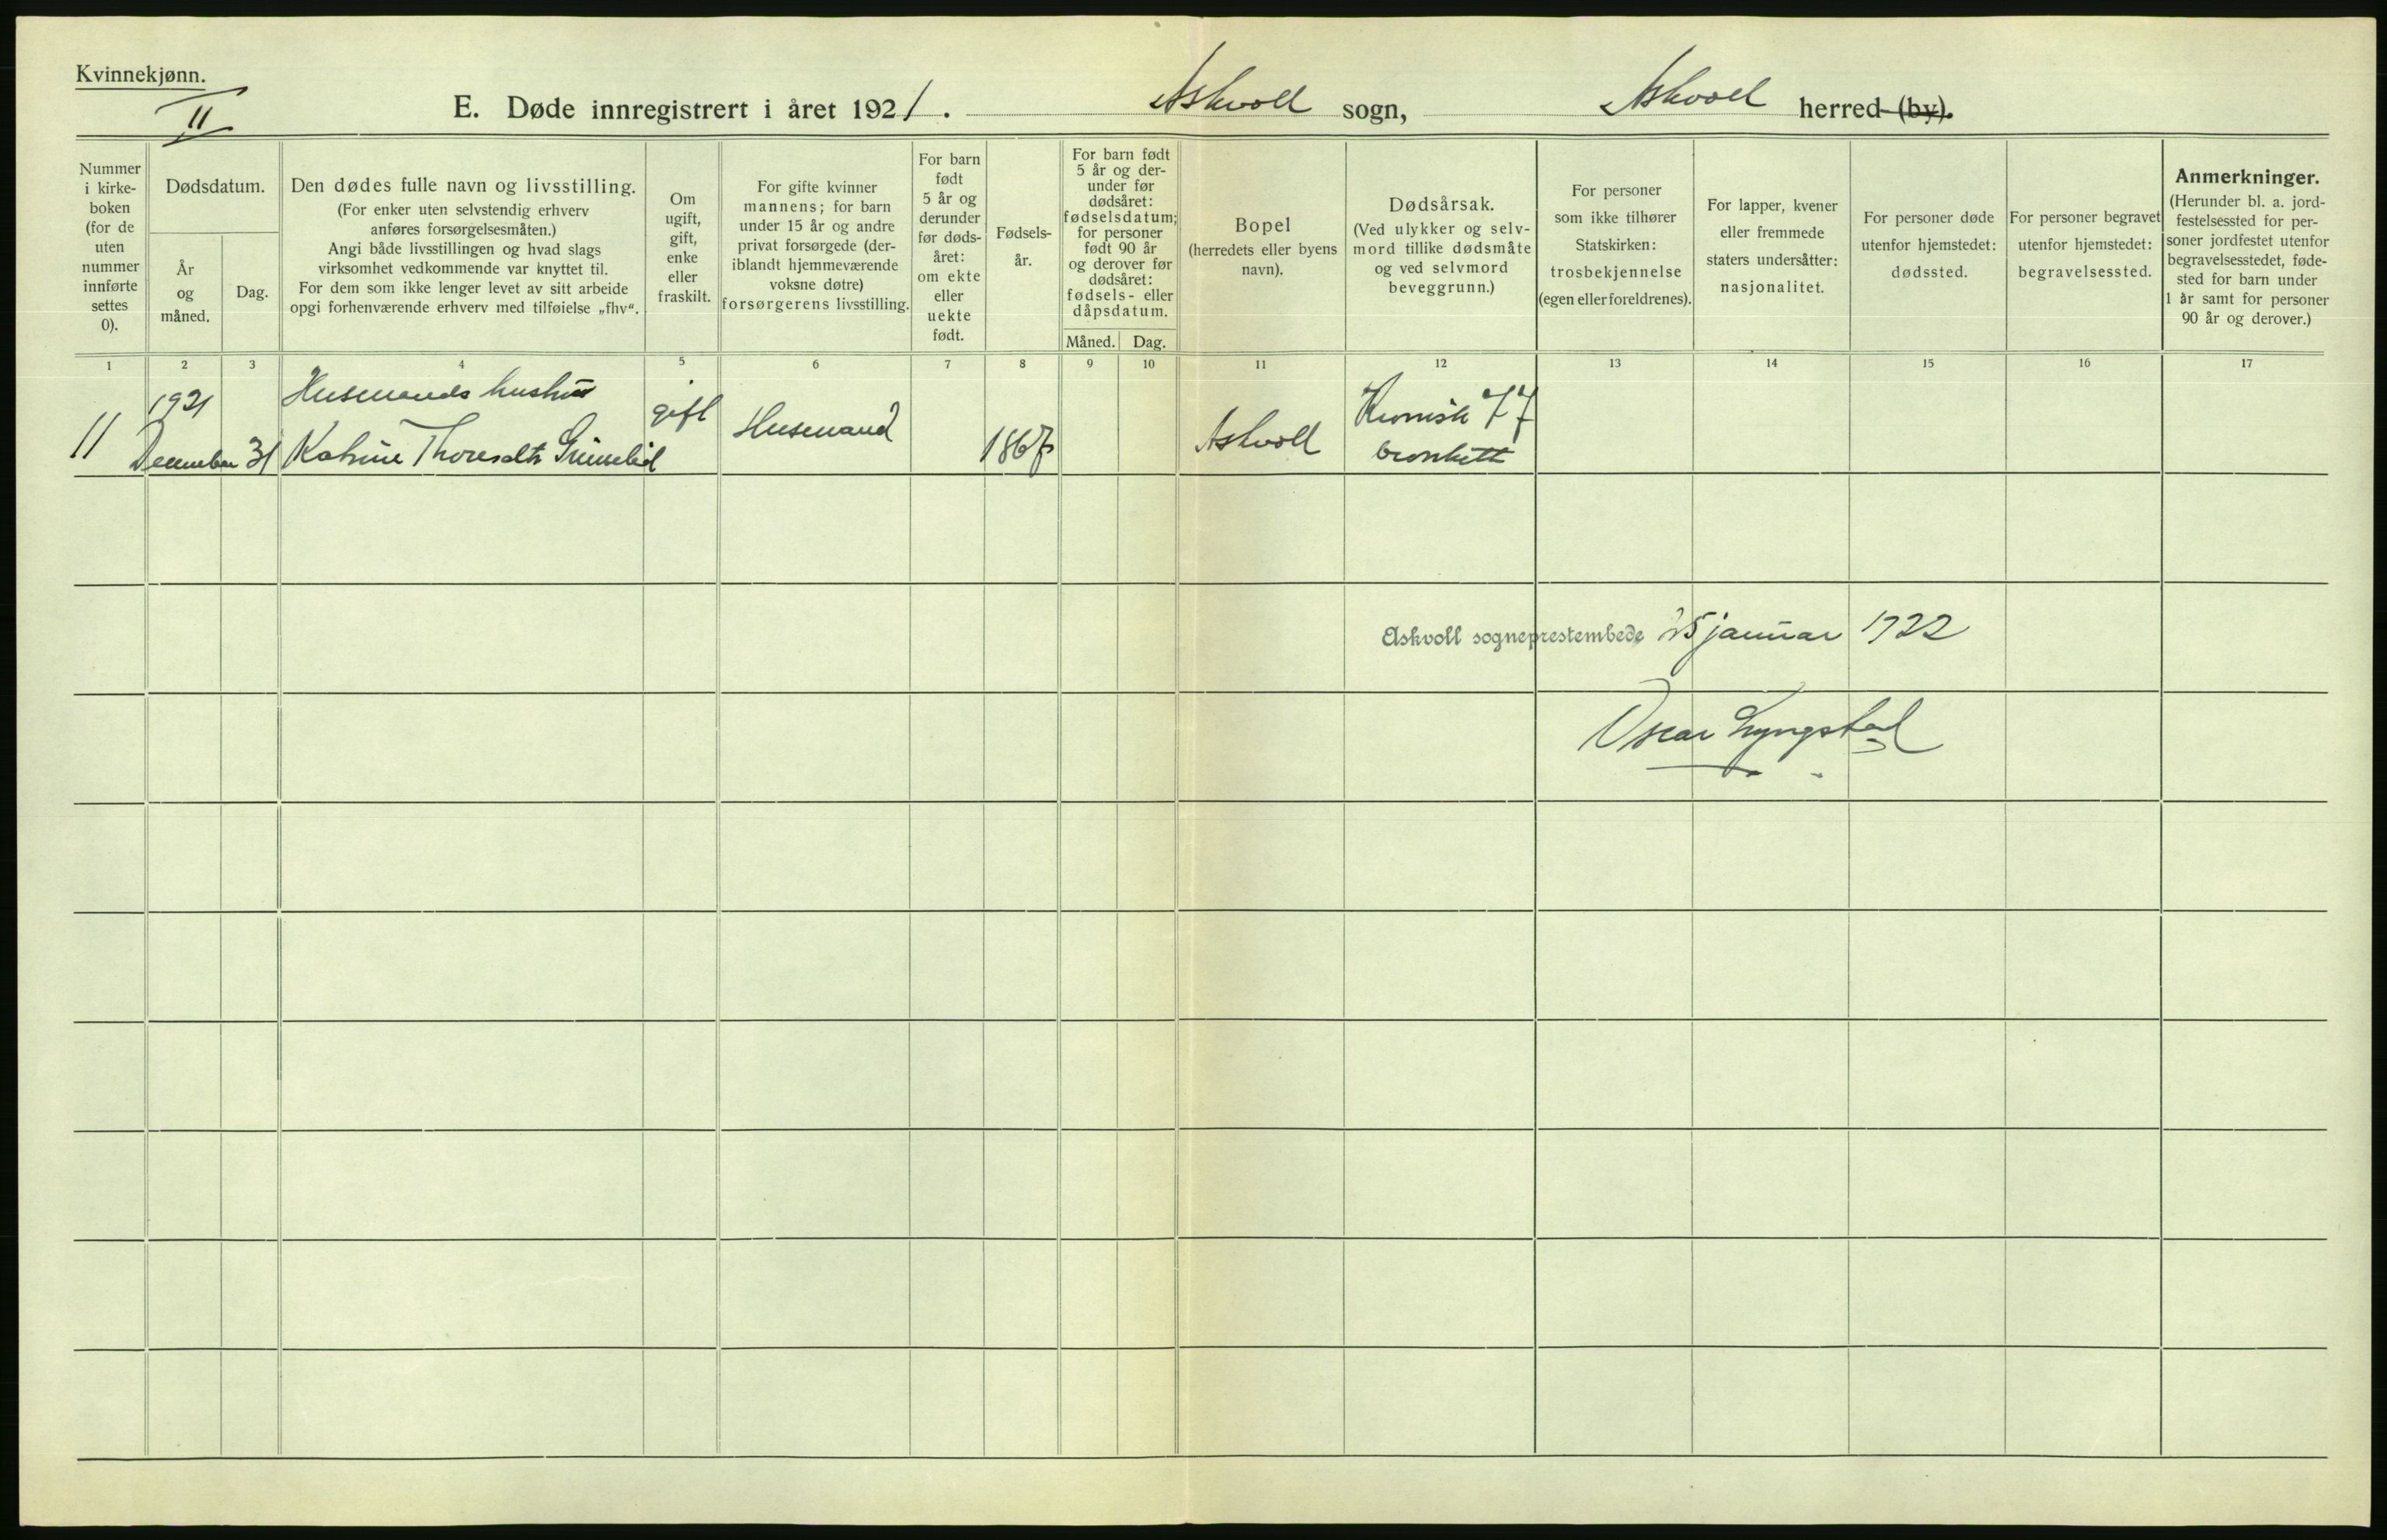 Kvinnekjønn.
II
E. Døde innregistrert i året 1921. Askvoll sogn, Askvoll herred (by).
Nummer i kirke-
boken
(for de
uten
nummer
innførte
settes
0).
Dødsdatum.
År
og
måned.
Dag.
Den dødes fulle navn og livsstilling.
(For enker uten selvstendig erhverv
anføres forsørgelsesmåten.)
Angi både livsstillingen og hvad slags
virksomhet vedkommende var knyttet til.
For dem som ikke lenger levet av sitt arbeide
opgi forhenværende erhverv med tilføielse „fhv“.
Om
ugift,
gift,
enke
eller
fraskilt.
For gifte kvinner
mannens; for barn
under 15 år og andre
privat forsørgede (der-
iblandt hjemmeværende
voksne døtre)
forsørgerens livsstilling.
For barn
født
5 år og
derunder
før døds-
året:
om ekte
eller
uekte
født.
Fødsels-
år.
For barn født
5 år og der-
under før
dødsåret:
fødselsdatum;
for personer
født 90 år
og derover før
dødsåret:
fødsels- eller
dåpsdatum.
Måned. Dag.
Bopel
(herredets eller byens
navn).
Dødsårsak.
(Ved ulykker og selv-
mord tillike dødsmåte
og ved selvmord
beveggrunn.)
For personer
som ikke tilhører
Statskirken:
trosbekjennelse
(egen eller foreldrenes).
For lapper, kvener
eller fremmede
staters undersåtter:
nasjonalitet.
For personer døde
utenfor hjemstedet:
dødssted.
For personer begravet
utenfor hjemstedet:
begravelsessted.
Anmerkninger.
(Herunder bl. a. jord-
festelsessted for per-
soner jordfestet utenfor
begravelsesstedet, føde-
sted for barn under
1 år samt for personer
90 år og derover.)
1 2 3 4 5 6 7 8 9 10 11 12 13 14 15 16 17
1921 Husmands hustru gift Husmand Kronisk 77
11 December 31 Katrine Thoresdtr 1867 Askvoll bronkitt
Askvoll sogneprestembede 25 januar 1922
Oscar Lyngstad